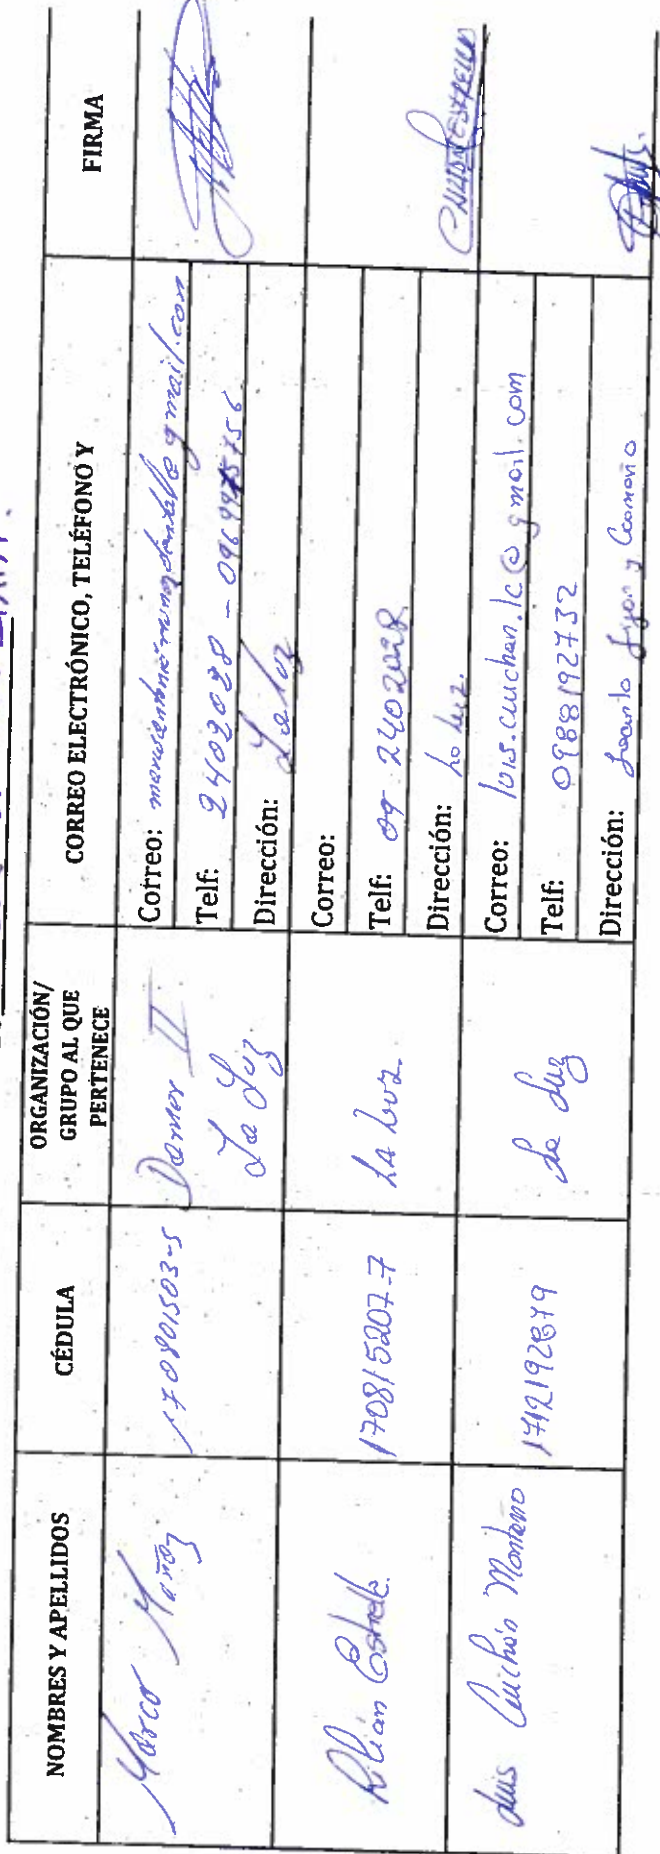 NOMBRES Y APELLIDOS
CÉDULA
ORGANIZACIÓN/
GRUPO AL QUE
PERTENECE
CORREO ELECTRÓNICO, TELÉFONO Y
FIRMA
Marco Muñoz
170801503-5
Dammer II
La Luz
Correo: @gmail.com
Telf: 2402028 -
Dirección: La Luz
Lilián Estrella
170815207-7
La Luz.
Correo:
Telf: 09 2402028
Dirección: La Luz.
Luis Cuichán Montero
1712192879
La Luz
Correo: luis.cuichan.lc@gmail.com
Telf: 0988192732
Dirección: Jacinto Jijón y Caamaño